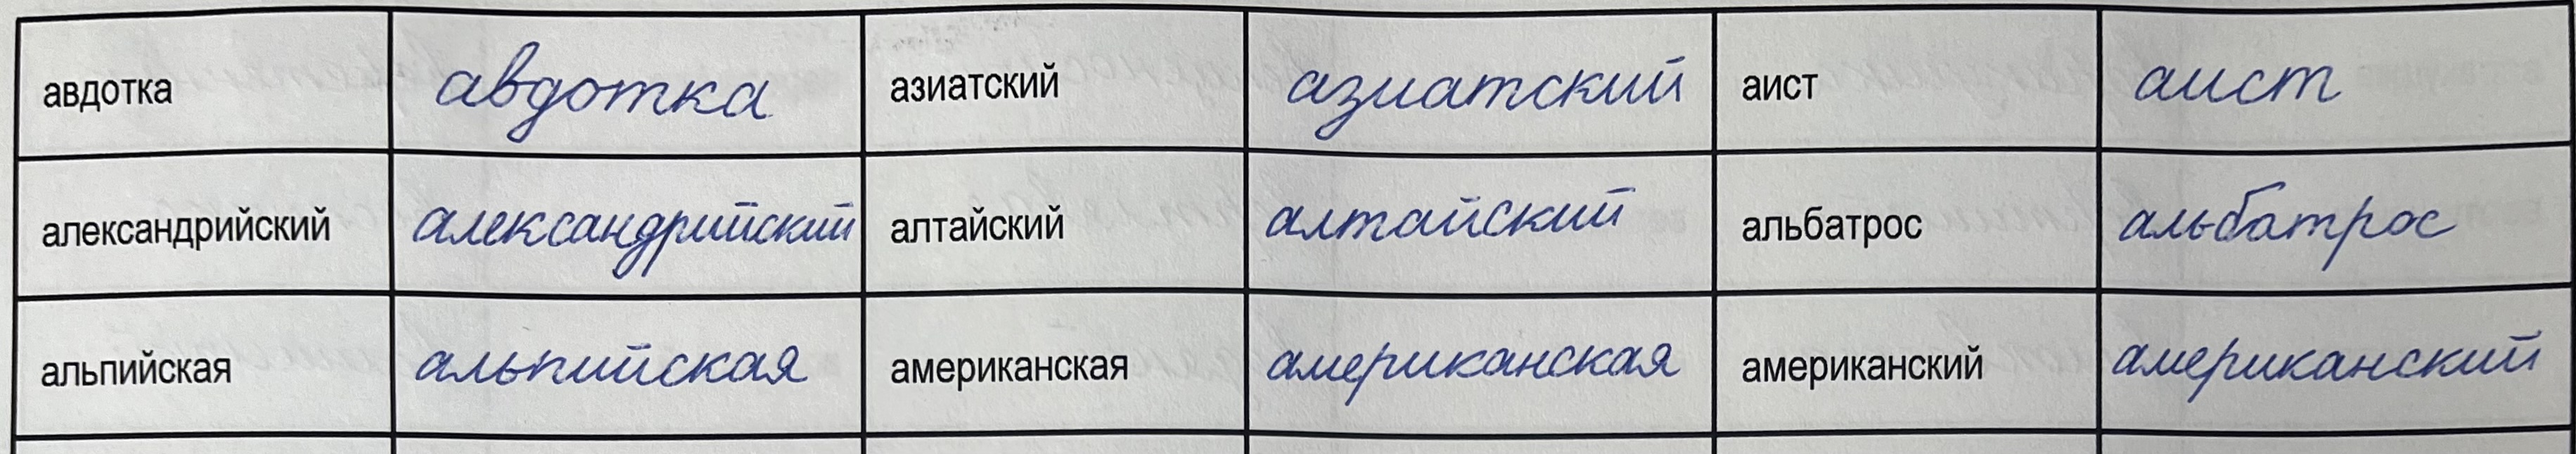 авдотка авдотка азиатский азиатский аист аист
александрийский александрийский алтайский алтайский альбатрос альбатрос
альпийская альпийская американская американская американский американский